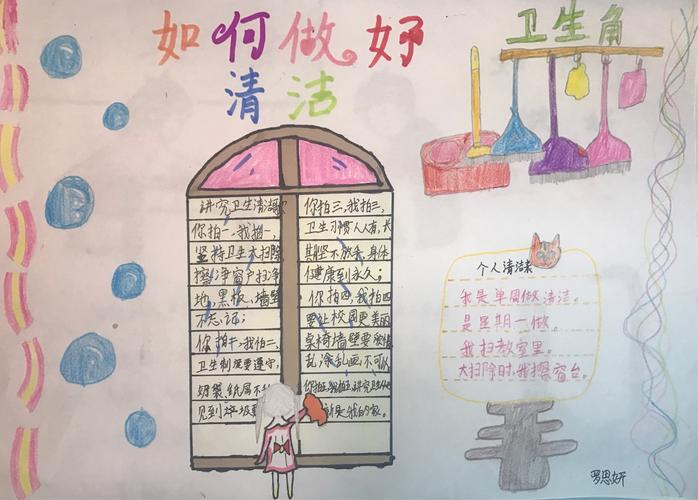 如何做好
清洁
卫生角
讲究卫生清洁歌
你拍一,我拍一,
坚持卫生大扫除
擦净窗户扫净
地,黑板、墙壁
不忘记;
你拍二,我拍二,
卫生制度要遵守,
奶袋、纸屑不
见到垃圾
你拍三,我拍三,
卫生习惯人人有,长
期坚不放手,身体
健康到永久;
你拍四,我拍四
要让校园更美丽
桌椅墙壁要
乱涂乱画不可以
你拍五,我拍五,讲究卫生
就是我的歌。
个人清洁表
我是单周做清洁。
是星期一做。
我扫教室里。
大扫除时,我擦窗台。
罗思妍